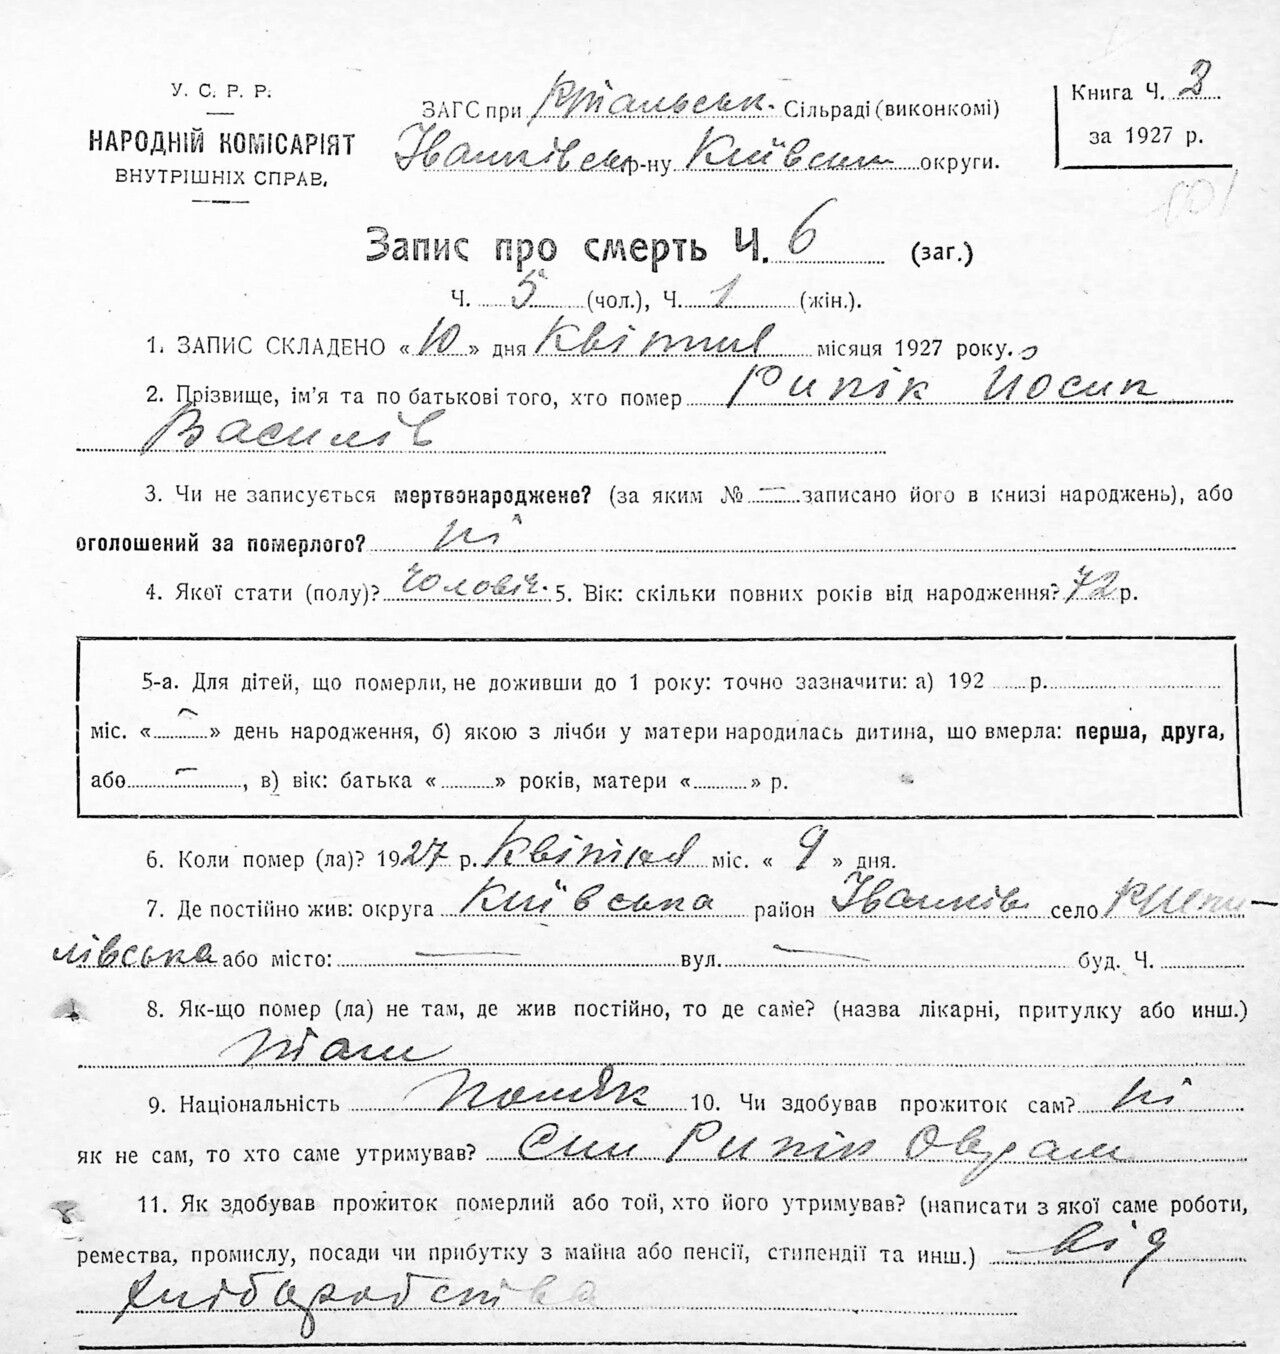 У. С. Р. Р.
НАРОДНІЙ КОМІСАРІЯТ
ВНУТРІШНІХ СПРАВ,
ЗАГС при Сільраді (виконкомі)
Іванківськ р-ну Київськ округи.
Книга Ч. 3
за 1927 р.
Запис про смерть Ч. 6 (заг.)
Ч. 5 (чол.), Ч. 1 (жін.).
1. ЗАПИС СКЛАДЕНО « 10 » дня Квітня місяця 1927 року.
2. Прізвище, ім'я та по батькові того, хто помер Рипік Йосип
Василів
3. Чи не записується мертвонароджене? (за яким № — записано його в книзі народжень), або
оголошений за померлого? ні
4. Якої стати (полу)? Чоловіч. 5. Вік: скільки повних років від народження? 72 р.
5-а. Для дітей, що померли, не доживши до 1 року: точно зазначити: а) 192 р.
міс. « — » день народження, б) якою з лічби у матери народилась дитина, що вмерла: перша, друга,
або — , в) вік: батька « » років, матери « » р.
6. Коли помер (ла)? 1927 р. Квітня міс. « 9 » дня.
7. Де постійно жив: округа Київська район Іванків село
або місто: — вул. — буд. Ч.
8. Як-що помер (ла) не там, де жив постійно, то де саме? (назва лікарні, притулку або инш.)
там
9. Національність Поляк 10. Чи здобував прожиток сам? ні
як не сам, то хто саме утримував? Син Рипік
11. Як здобував прожиток померлий або той, хто його утримував? (написати з якої саме роботи,
ремества, промислу, посади чи прибутку з майна або пенсії, стипендії та инш.) від
хліборобства